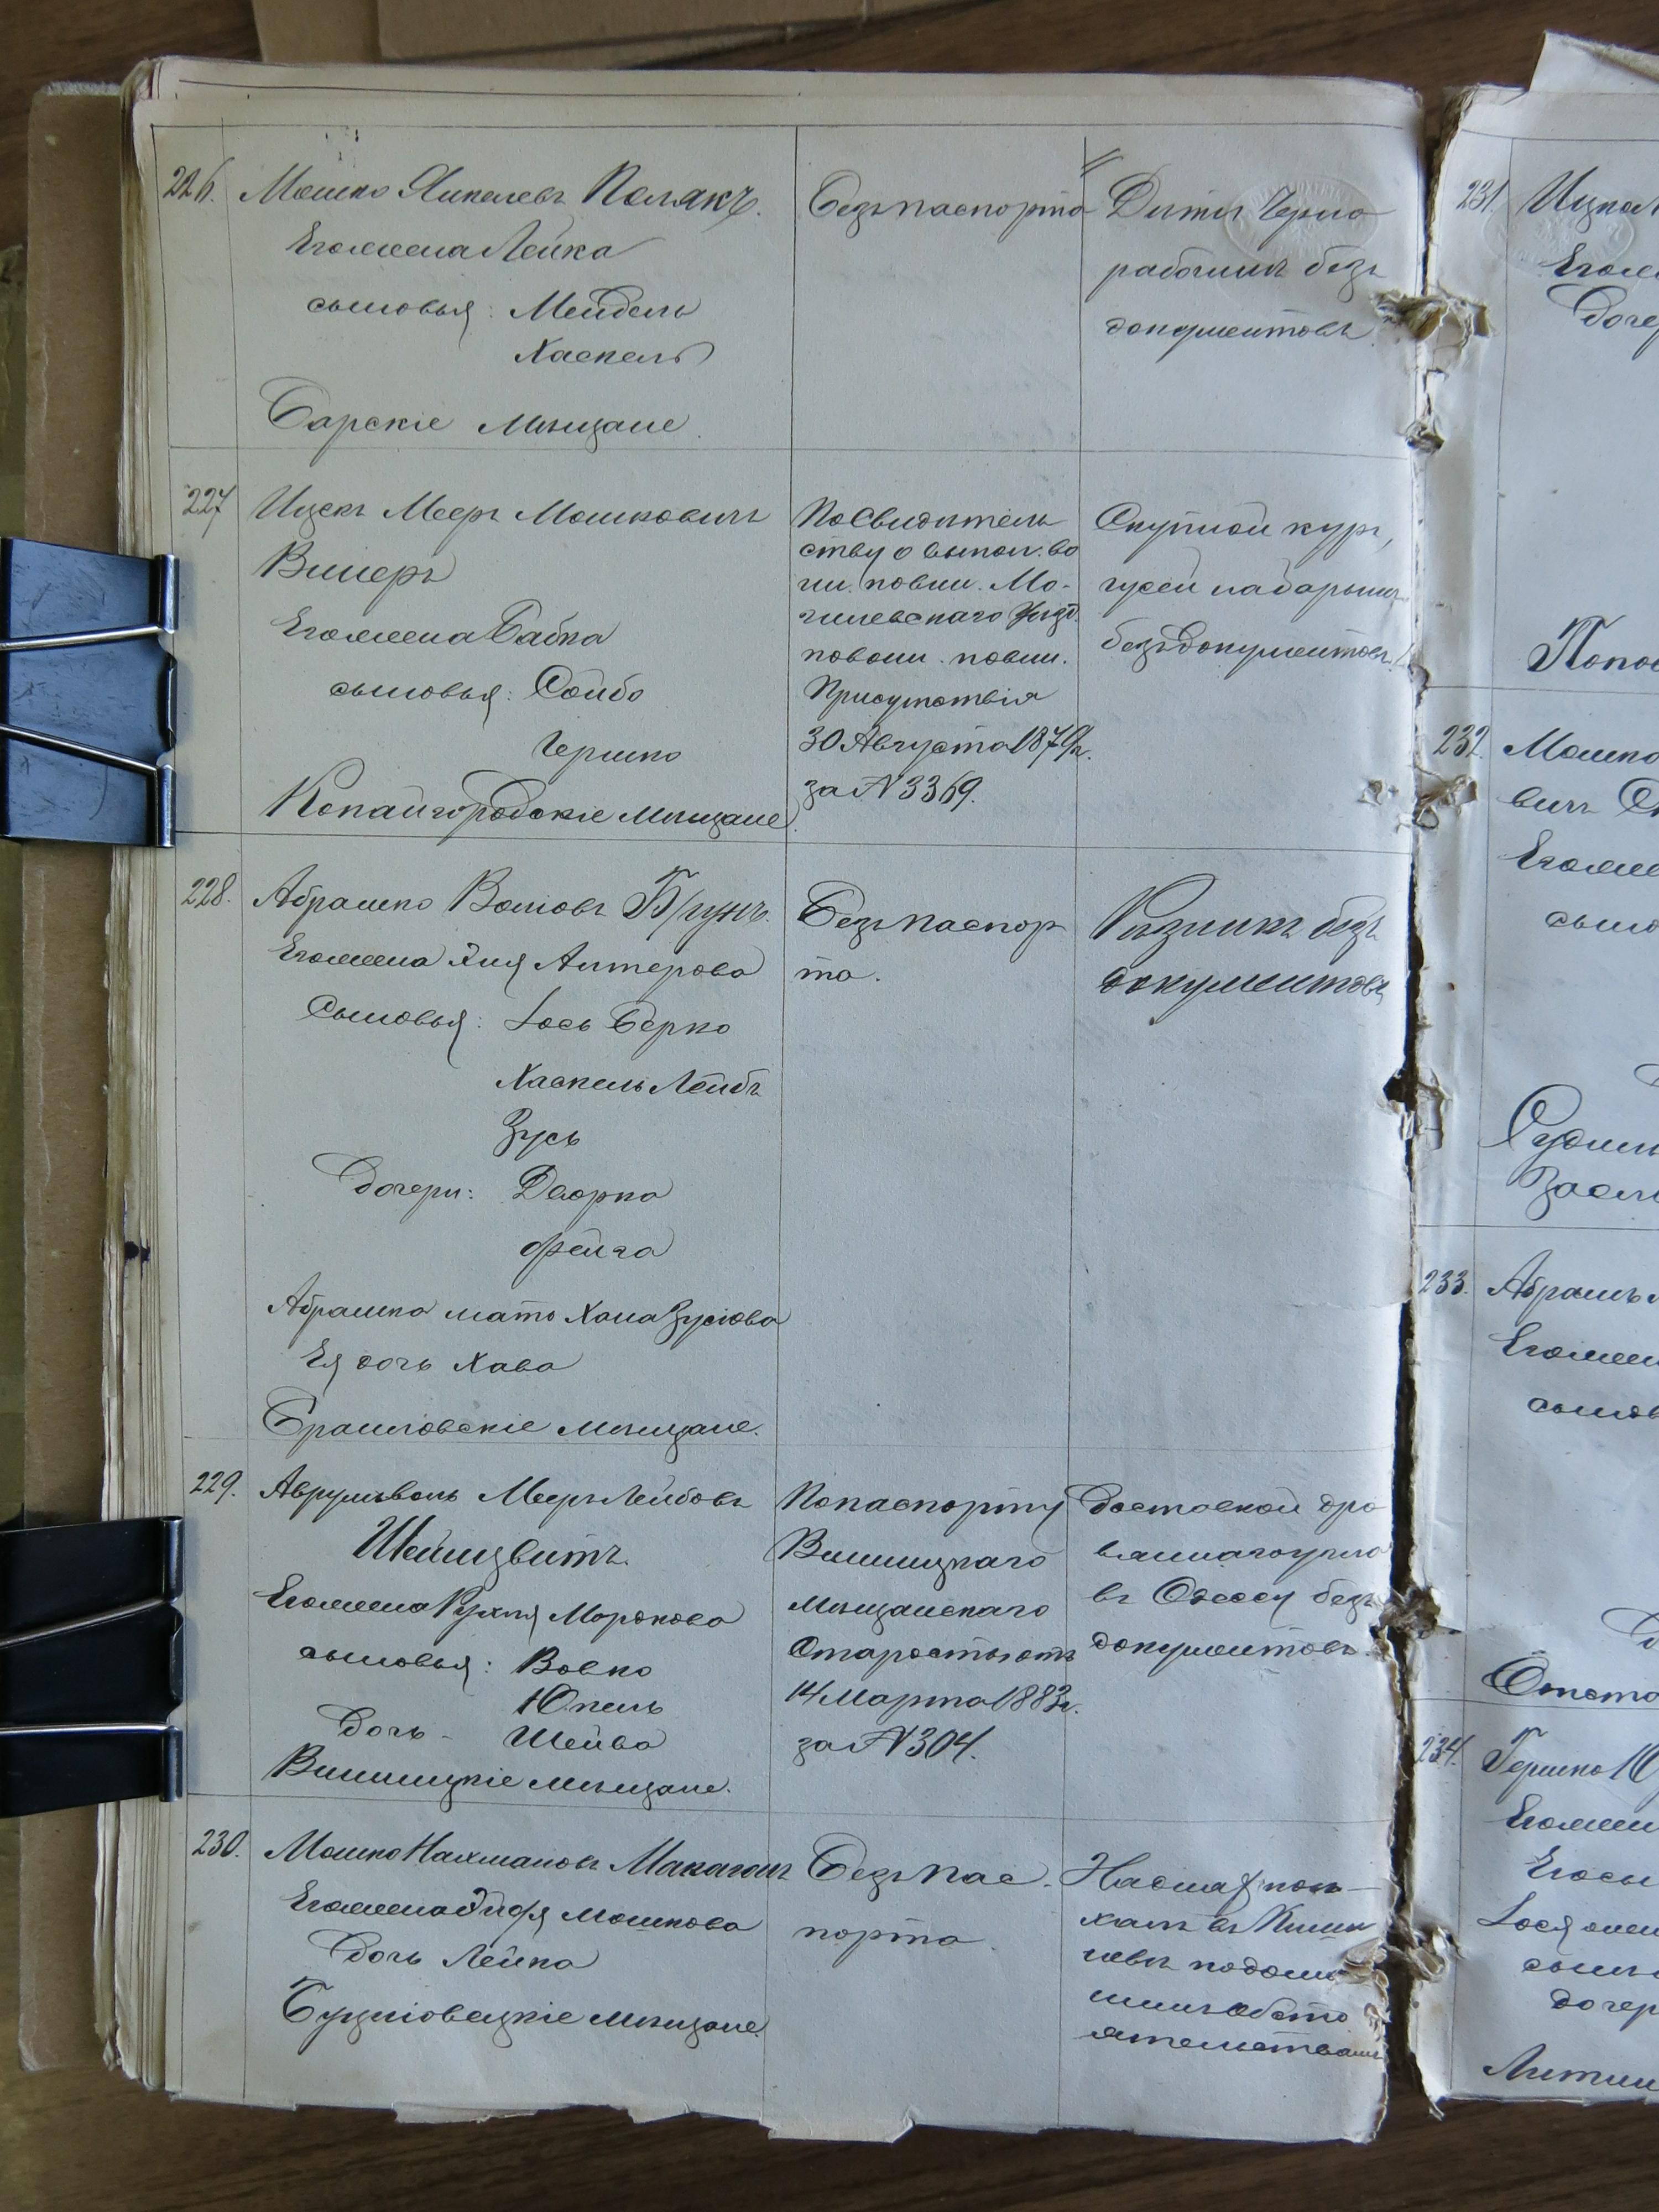 226. Мошко Янкелевъ Полякъ.
Его жена Лейка
сыновья: Мендель
Хаскель
Барскіе Мѣщане.
Безъ паспорта
Дѣти Черно
рабочимъ безъ
документовъ.
227 Ицекъ Мееръ Мошковичъ
Винеръ
Его жена Бабка
сыновья: Сойбо
Гершко
Копайгородскіе Мѣщане.
По Свидѣтель
ству о выпол. во
ин. повин. Мо-
гилевскаго Уѣзд.
по воин. повин.
Присутствія
30 Августа 1879 г.
за N 3369.
Скупкой куръ,
гусей
безъ документовъ.
228. Абрашко Волковъ
Его жена Хая Алтерова
Сыновья: Іось Берко
Хаскель Лейбъ
Зусь
Дочери: Дворка
Фейга
Абрашка мать Хана Зусіова
Ея дочь Хава
Браиловскіе Мѣщане.
Безъ паспор
та.
Рѣзникъ безъ
документовъ
229. Аврумъ Воль Мееръ Лейбовъ
Шейнцвитъ.
Его жена Рухля Мордкова
сыновья: Вовко
Юкель
дочь - Шейва
Винницкіе мѣщане.
По паспорту
Винницкаго
Мѣщанскаго
Старосты отъ
14 Марта 1883 г.
за N 304.
Доставкой дро
въ Одессу безъ
документовъ.
230. Мошко Нахмановъ Макагонъ
Его жена Эйдя Мошкова
Дочь Лейка
Буцніовецкіе мѣщане.
Безъ пас-
порта.
халъ въ Киши
невъ по дома
шнимъ обсто
ятельствамъ
231.
Его же
Доче
232. Мошко
вичъ
Его же
сыно
233. Абрамъ
Его жен
сынов
234. Гершко
Его жен
Его сы
дочер